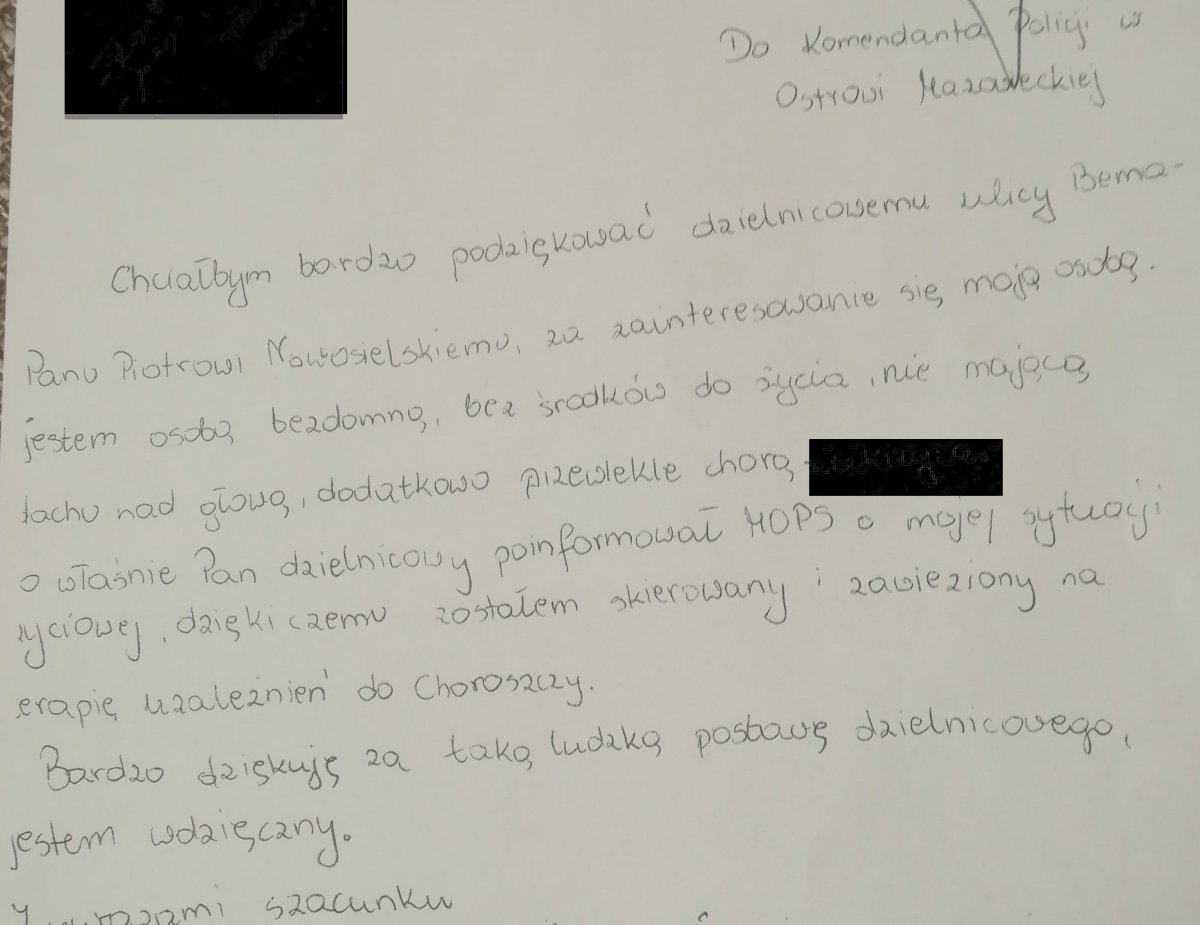 Do Komendanta Policji w
Ostrowi Mazowieckiej
Chciałbym bardzo podziękować dzielnicowemu ulicy Bema-
Panu Piotrowi Nowosielskiemu, za zainteresowanie się moją osobą.
jestem osobą bezdomną, bez środków do życia, nie mającą
dachu nad głową, dodatkowo przewlekle chorą
o właśnie Pan dzielnicowy poinformował MOPS o mojej sytuacji
życiowej, dzięki czemu zostałem skierowany i zawieziony na
erapię uzależnień do Choroszczy.
Bardzo dziękuję za taką ludzką postawę dzielnicowego,
jestem wdzięczny.
szacunku